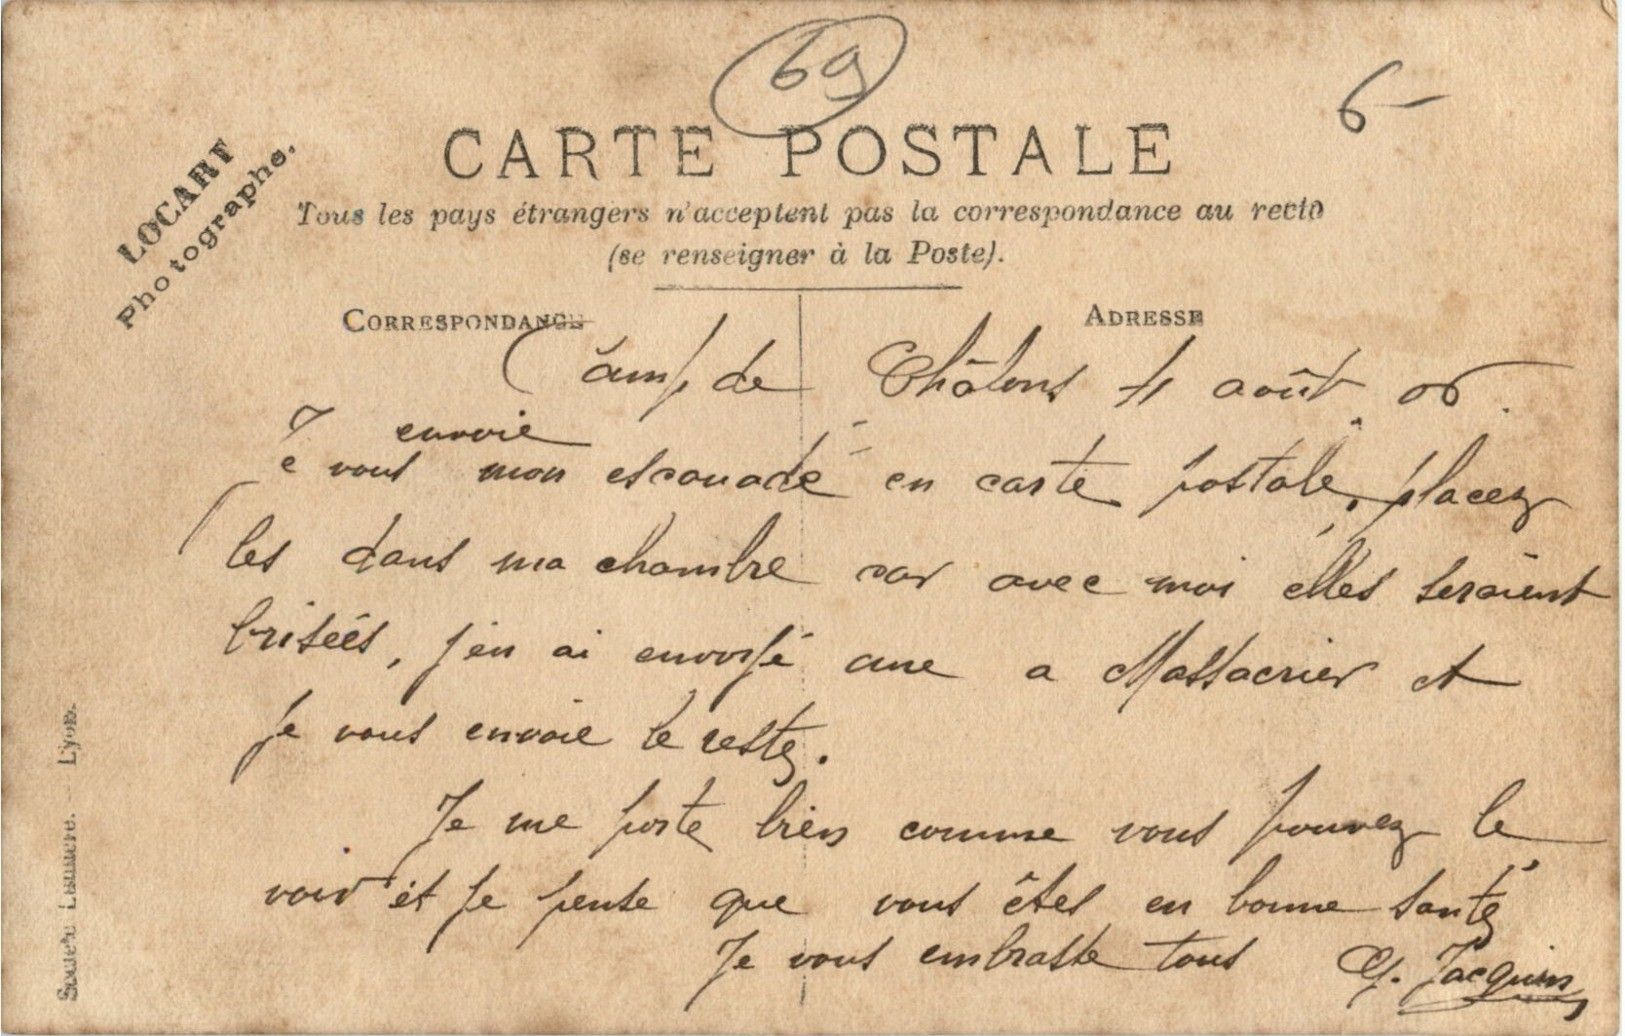 69
6-
CARTE POSTALE
LOCART
Photographe.
Tous les pays étrangers n'acceptent pas la correspondance au recto
(se renseigner à la Poste).
CORRESPONDANCE
ADRESSE
Camp de Châlons 11 août 06.
Je vous envoie mon escouade en carte postale, placez
les dans ma chambre car avec moi elles seraient
brisées, j'en ai envoyé une a Massacrier et
je vous envoie le reste.
Je me porte bien comme vous pouvez le
voir et je pense que vous êtes en bonne santé
Je vous embrasse tous G. Jacquin
Société Lumière. — Lyon.